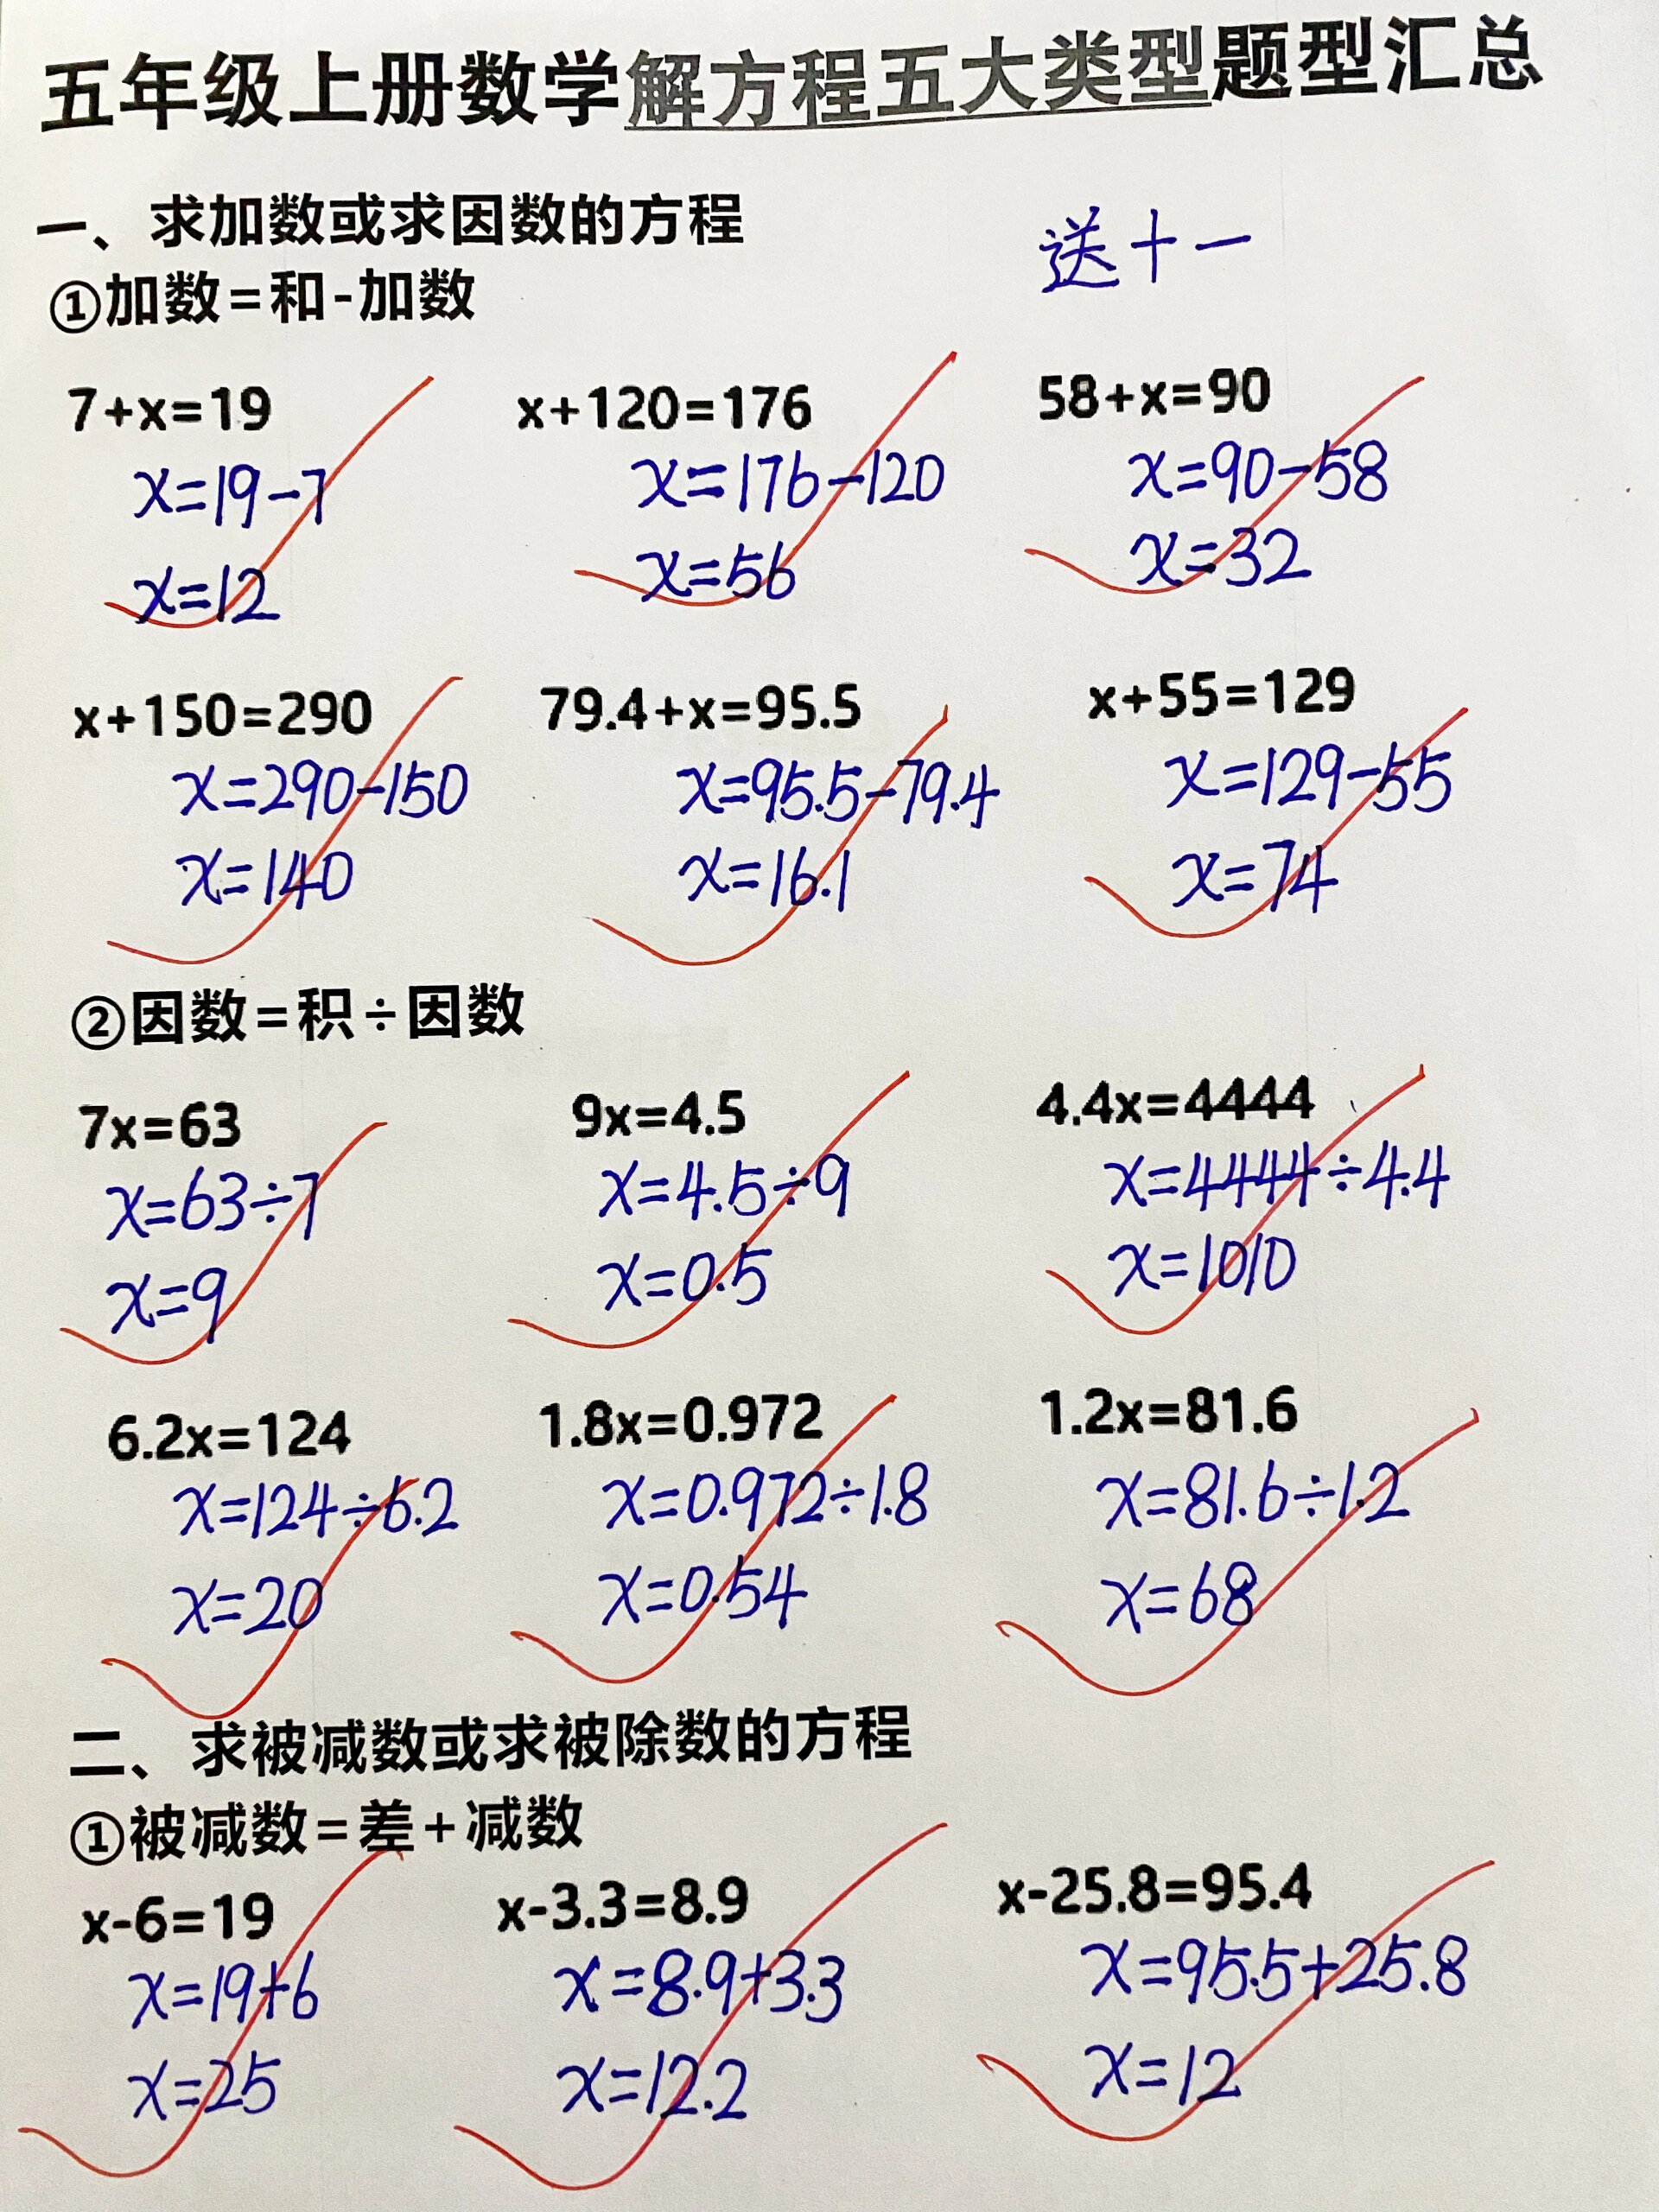 五年级上册数学解方程五大类型题型汇总
一、求加数或求因数的方程
送十一
①加数=和-加数
7+x=19 x+120=176 58+x=90
x=19-7 x=176-120 x=90-58
x=12 x=56 x=32
x+150=290 79.4+x=95.5 x+55=129
x=290-150 x=95.5-79.4 x=129-55
x=140 x=16.1 x=74
②因数=积÷因数
7x=63 9x=4.5 4.4x=4444
x=63÷7 x=4.5÷9 x=4444÷4.4
x=9 x=0.5 x=1010
6.2x=124 1.8x=0.972 1.2x=81.6
x=124÷6.2 x=0.972÷1.8 x=81.6÷1.2
x=20 x=0.54 x=68
二、求被减数或求被除数的方程
①被减数=差+减数
x-6=19 x-3.3=8.9 x-25.8=95.4
x=19+6 x=8.9+3.3 x=95.5+25.8
x=25 x=12.2 x=12